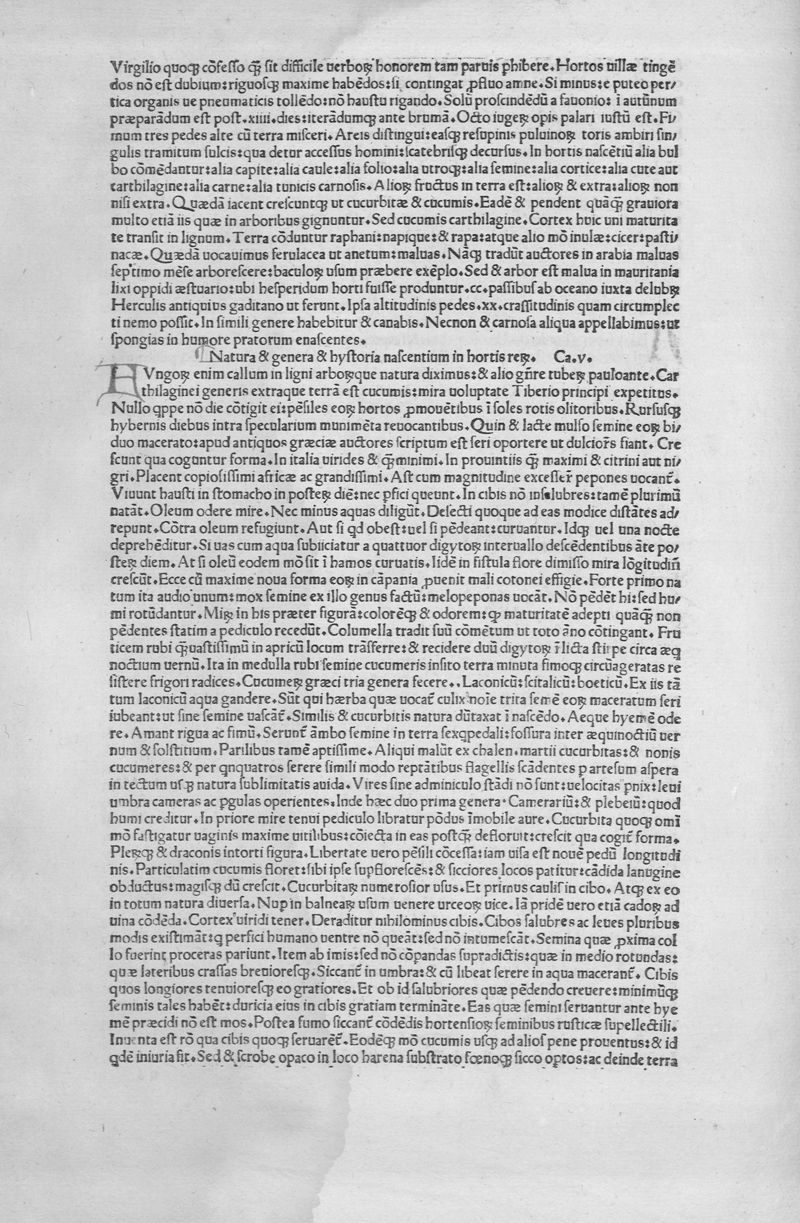 Virgilio quoqꝫ cōfesso q̄ꝫ sit difficile uerboꝝ honorem tam paruis phibere. Hortos uillæ tingē
dos nō est dubium: riguosqꝫ maxime habēdos: si contingat ꝓfluo amne. Si minus: e puteo per/
tica organis ue pneumaticis tollēdo: nō haustu rigando. Solū proscindēdū a fauonio: ī autūnum
præparādum est post .xiiii. dies: iterādumqꝫ ante brumā. Octo iugeꝝ opis palari iustū est. Fi/
mum tres pedes alte cū terra misceri. Areis distingui: easqꝫ resupinis puluinoꝝ toris ambiri sin/
gulis tramitum sulcis: qua detur accessus homini: scatebrisqꝫ decursus. In hortis nascētiū alia bul
bo cōmēdantur: alia capite: alia caule: alia folio: alia utroqꝫ: alia semine: alia cortice: alia cute aut
carthilagine: alia carne: alia tunicis carnosis. Alioꝝ fructus in terra est: alioꝝ & extra: alioꝝ non
nisi extra. Quædā iacent crescuntqꝫ ut cucurbitæ & cucumis. Eadē & pendent quāq̄ꝫ grauiora
multo etiā iis quæ in arboribus gignuntur. Sed cucumis carthilagine. Cortex huic uni maturita
te transit in lignum. Terra cōduntur raphani: napique: & rapa: atque alio mō inulæ: cicer: pasti/
nacæ. Quædā uocauimus ferulacea ut anetum: maluas. Nāqꝫ tradūt auctores in arabia maluas
septimo mēse arborescere: baculoꝝ usum præbere exēplo. Sed & arbor est malua in mauritania
lixi oppidi æstuario: ubi hesperidum horti fuisse produntur .cc. passibus ab oceano iuxta delubꝝ
Herculis antiquius gaditano ut ferunt. Ipsa altitudinis pedes .xx. crassitudinis quam circumplec
ti nemo possit. In simili genere habebitur & canabis. Necnon & carnosa aliqua appellabimus: ut
spongias in humore pratorum enascentes.
Natura & genera & hystoria nascentium in hortis reꝝ. Ca.v.
FVngoꝝ enim callum in ligni arboꝝque natura diximus: & alio gn̄re tubeꝝ pauloante. Car
thilaginei generis extraque terrā est cucumis: mira uoluptate Tiberio principi expetitus.
Nullo qppe nō die cōtigit ei: pēsiles eoꝝ hortos ꝓmouētibus ī soles rotis olitoribus. Rursusqꝫ
hybernis diebus intra specularium munimēta reuocantibus. Quin & lacte mulso semine eoꝝ bi/
duo macerato: apud antiquos græciæ auctores scriptum est seri oportere ut dulciors̄ fiant. Cre
scunt qua coguntur forma. In italia uirides & q̄ꝫminimi. In prouintiis q̄ꝫ maximi & citrini aut ni/
gri. Placent copiosissimi africæ ac grandissimi. Ast cum magnitudine excesser̄t pepones uocant̄.
Viuunt hausti in stomacho in posteꝝ diē: nec pfici queunt. In cibis nō insalubres: tamē plurimū
natāt. Oleum odere mire. Nec minus aquas diligūt. Defecti quoque ad eas modice distātes ad/
repunt. Cōtra oleum refugiunt. Aut si qd obest: uel si pēdeant: curuantur. Idqꝫ uel una nocte
deprehēditur. Si uas cum aqua subiiciatur a quattuor digytoꝝ interuallo descēdentibus āte po/
steꝝ diem. At si oleū eodem mō sit ī hamos curuatis. Iidē in fistula flore dimisso mira lōgitudin̄
crescūt. Ecce cū maxime noua forma eoꝝ in cāpania ꝓuenit mali cotonei effigie. Forte primo na
tum ita audio unum: mox semine ex illo genus factū: melopeponas uocāt. Nō pēdēt hi: sed hu/
mi rotūdantur. Miꝝ in his præter figurā: colorēqꝫ & odorem: ꝙ maturitatē adepti quāq̄ꝫ non
pēdentes statim a pediculo recedūt. Columella tradit suū cōmētum ut toto āno cōtingant. Fru
ticem rubi q̄ꝫuastissimū in apricū locum trāsferre: & recidere duū digytoꝝ relicta stirpe circa æq
noctium uernū. Ita in medulla rubi semine cucumeris insito terra minuta fimoqꝫ circūaggeratas re
sistere frigori radices. Cucumeꝝ græci tria genera fecere. Laconicū: scitalicū: boeticū. Ex iis tā
tum laconicū aqua gandere. Sūt qui hærba quæ uocat̄ culix noīe trita semē eoꝝ maceratum seri
iubeant: ut sine semine uascāt̄. Similis & cucurbitis natura dūtaxat ī nascēdo. Aeque hyemē ode
re. Amant rigua ac fimū. Serunt̄ ābo semine in terra sexqpedali: fossura inter æquinoctiū uer
num & solstitium. Parilibus tamē aptissime. Aliqui malūt ex chalen. martii cucurbitas: & nonis
cucumeres: & per qnquatros serere simili modo reptātibus flagellis scādentes p artesum aspera
in tectum usqꝫ natura sublimitatis auida. Vires sine adminiculo stādi nō sunt: uelocitas pnix: leui
umbra cameras ac pgulas operientes. Inde hæc duo prima genera. Camerariū: & plebeiū: quod
humi creditur. In priore mire tenui pediculo libratur pōdus īmobile aure. Cucurbita quoqꝫ omī
mō fastigatur uaginis maxime uitilibus: cōiecta in eas postq̄ꝫ defloruit: crescit qua cogit̄ forma.
Pleꝝqꝫ & draconis intorti figura. Libertate uero pēsili cōcessa: iam uisa est nouē pedū longitudi
nis. Particulatim cucumis floret: sibi ipse supflorescēs: & sicciores locos patitur: cādida lanugine
obductus: magisqꝫ dū crescit. Cucurbitaꝝ numerosior usus. Et primus caulis in cibo. Atqꝫ ex eo
in totum natura diuersa. Nup in balneaꝝ usum uenere urceoꝝ uice. Iā pridē uero etiā cadoꝝ ad
uina cōdēda. Cortex uiridi tener. Deraditur nihilominus cibis. Cibos salubres ac leues pluribus
modis existimāt: q perfici humano uentre nō queāt: sed nō intumescāt. Semina quæ ꝓxima col
lo fuerint proceras pariunt. Item ab imis: sed nō cōpandas supradictis: quæ in medio rotundas:
quæ lateribus crassas breuioresqꝫ. Siccant̄ in umbra: & cū libeat serere in aqua macerant̄. Cibis
quos longiores tenuioresqꝫ eo gratiores. Et ob id salubriores quæ pēdendo creuere: minimūqꝫ
seminis tales habēt: duricia eius in cibis gratiam termināte. Eas quæ semini seruantur ante hye
mē præcidi nō est mos. Postea fumo siccant̄ cōdēdis hortensioꝝ seminibus rusticæ supellectili.
Inuenta est rō qua cibis quoqꝫ seruarēt̄. Eodēqꝫ mō cucumis usqꝫ ad alios pene prouentus: & id
qdē iniuria fit. Sed & scrobe opaco in loco harena substrato fœnoqꝫ sicco optos: ac deinde terra